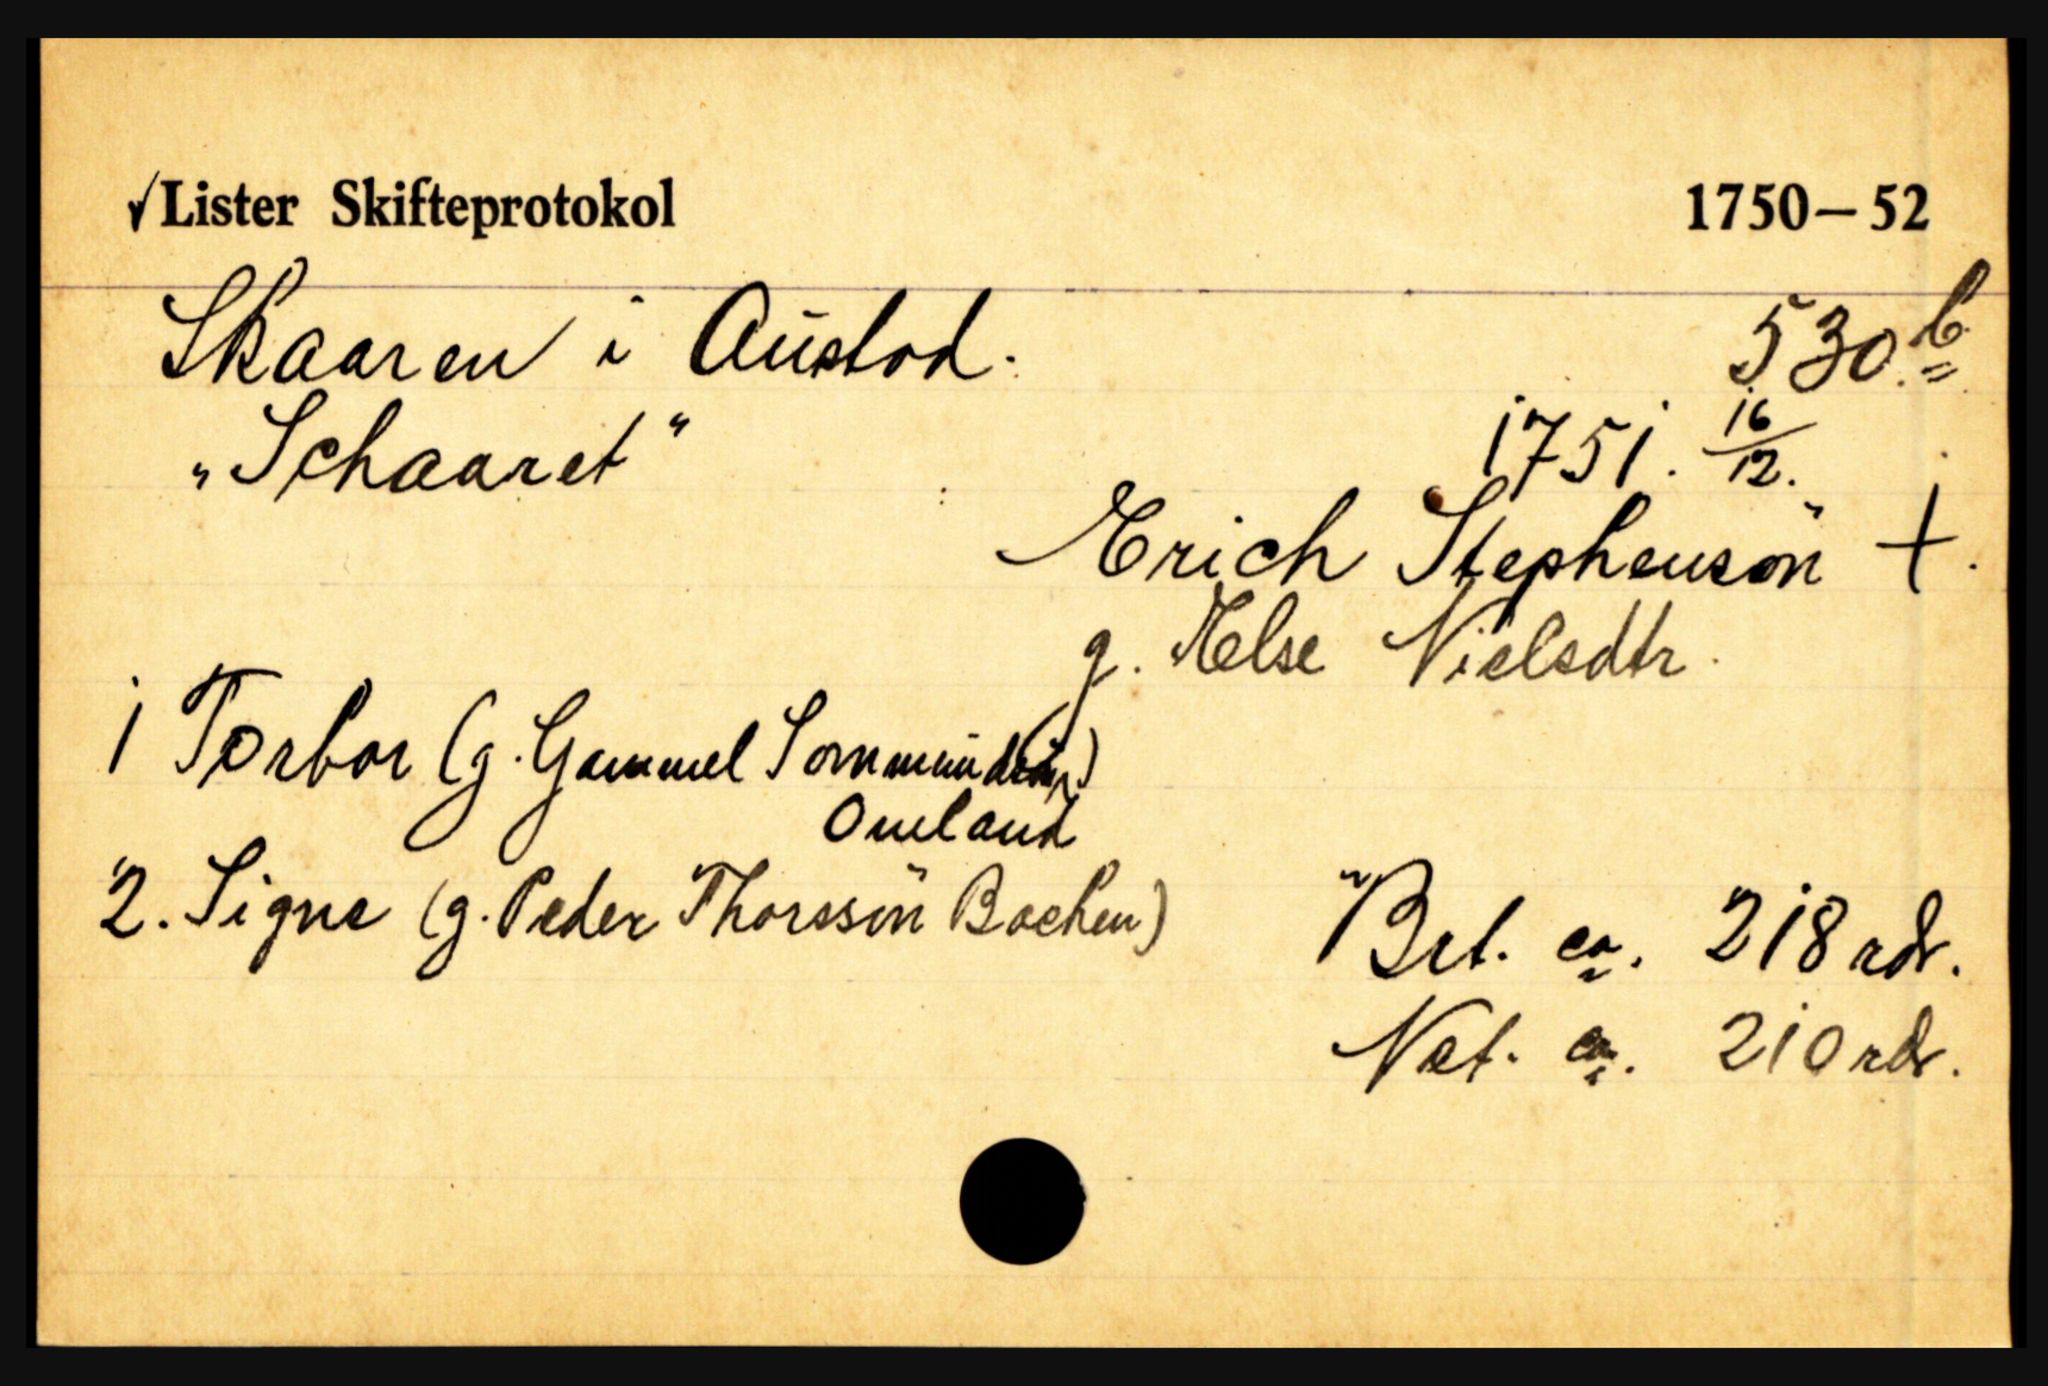 ✓ Lister Skifteprotokol 1750–52
Skaaren i Austad. 530.b
"Schaaret" 1751. 16/12.
Erich Stephensön +.
g. Else Nielsdtr.
1 Torbor (g. Gammel Sommund
Omland
2. Signe (g. Peder Thorssön Bachen)
Brt. ca. 218 rdr.
Net. ca. 210 rdr.